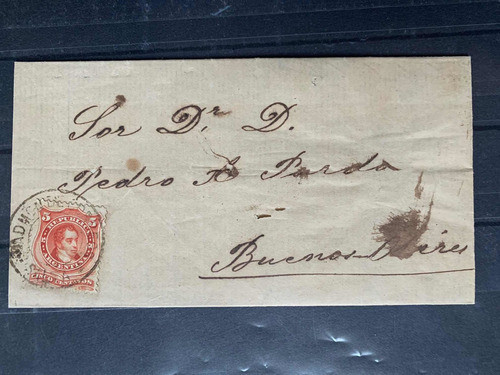 Sor Dr. D.
Pedro A. Pardo
Buenos Aires
5 5
REPUBLICA
ARGENTINA
CINCO CENTAVOS